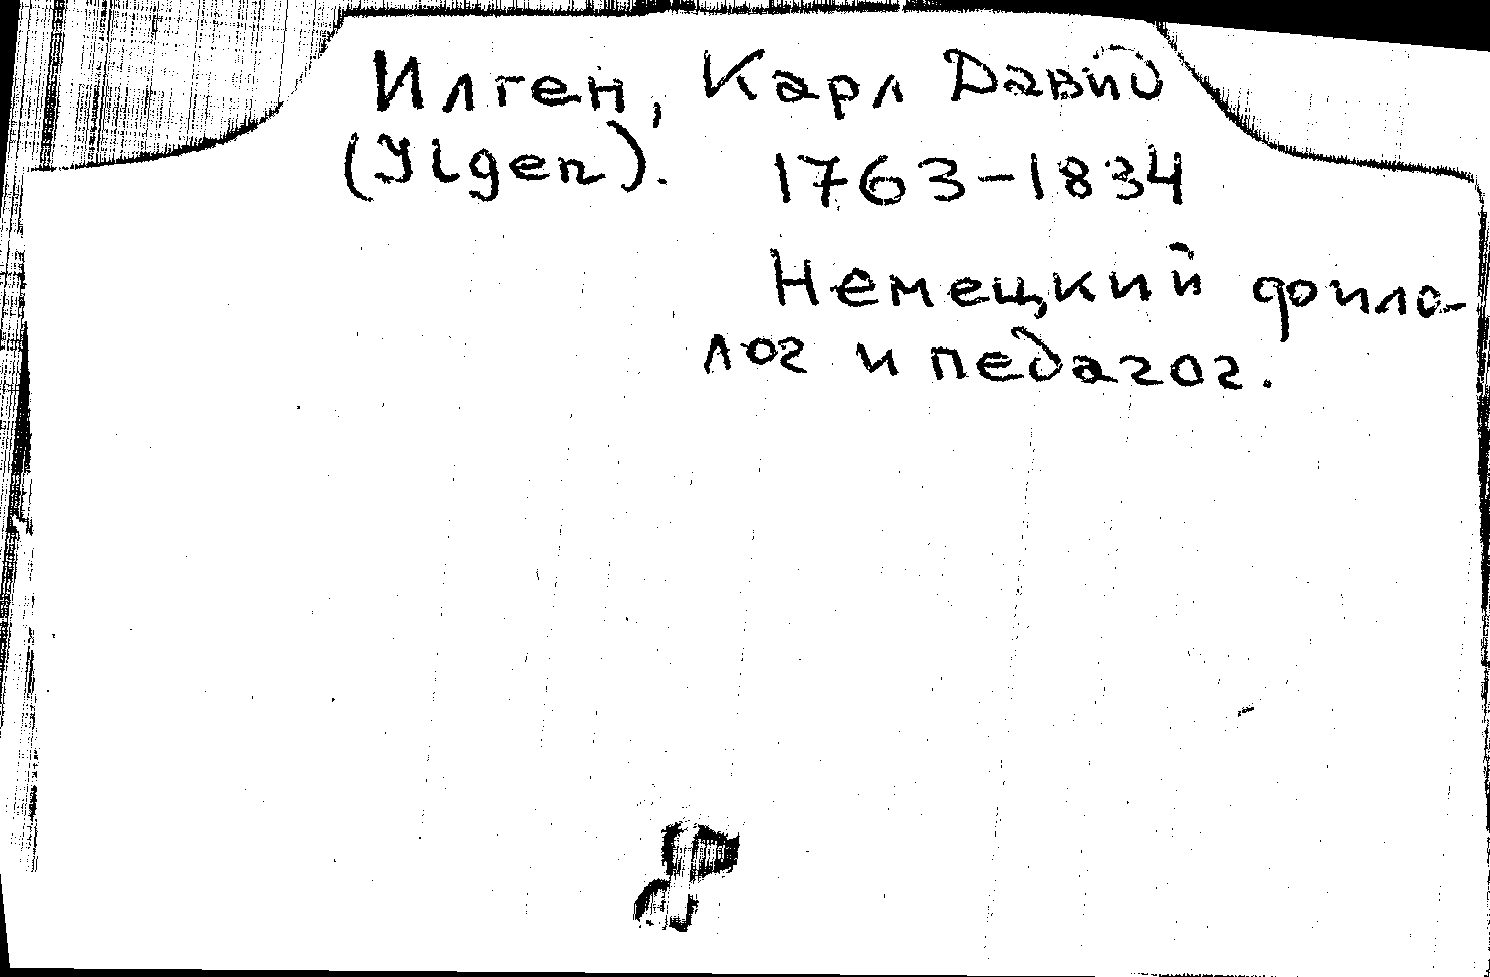 Илген, Карл Давид
(Ilgen). 1763-1834
Немецкий фило-
лог и педагог.